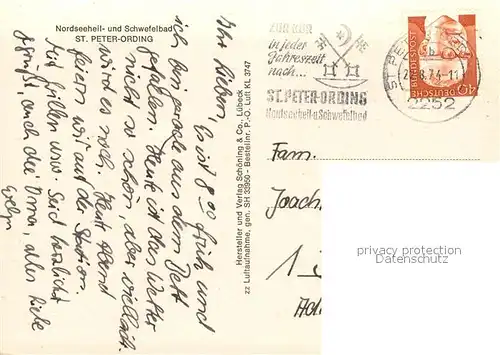 Nordseeheil- und Schwefelbad
ST. PETER-ORDING
Ihr Lieben, Es ist 8 00 früh und
ich bin gerade aus dem Bett
gefallen. Heute ist das Wetter
nicht so schön, aber vielleicht
wird es noch. Heute Abend
feiern wir auf der Station.
Mit Grillen usw. Seid herzlichst
gegrüßt, auch die Oma, alles Liebe
Evelyn
Hersteller und Verlag Schöning & Co., Lübeck
zz Luftaufnahme, gen. SH 33950 - Bestellnr. P.-O. Luft KL 3747
ZUR KUR
in jeder
Jahreszeit
nach...
ST. PETER-ORDING
Nordseeheil-u. Schwefelbad
ST PE
8.74-11
2252
DEUTSCHE BUNDESPOST
40
Fam.
Joach
1
privacy protection
(Watermark)